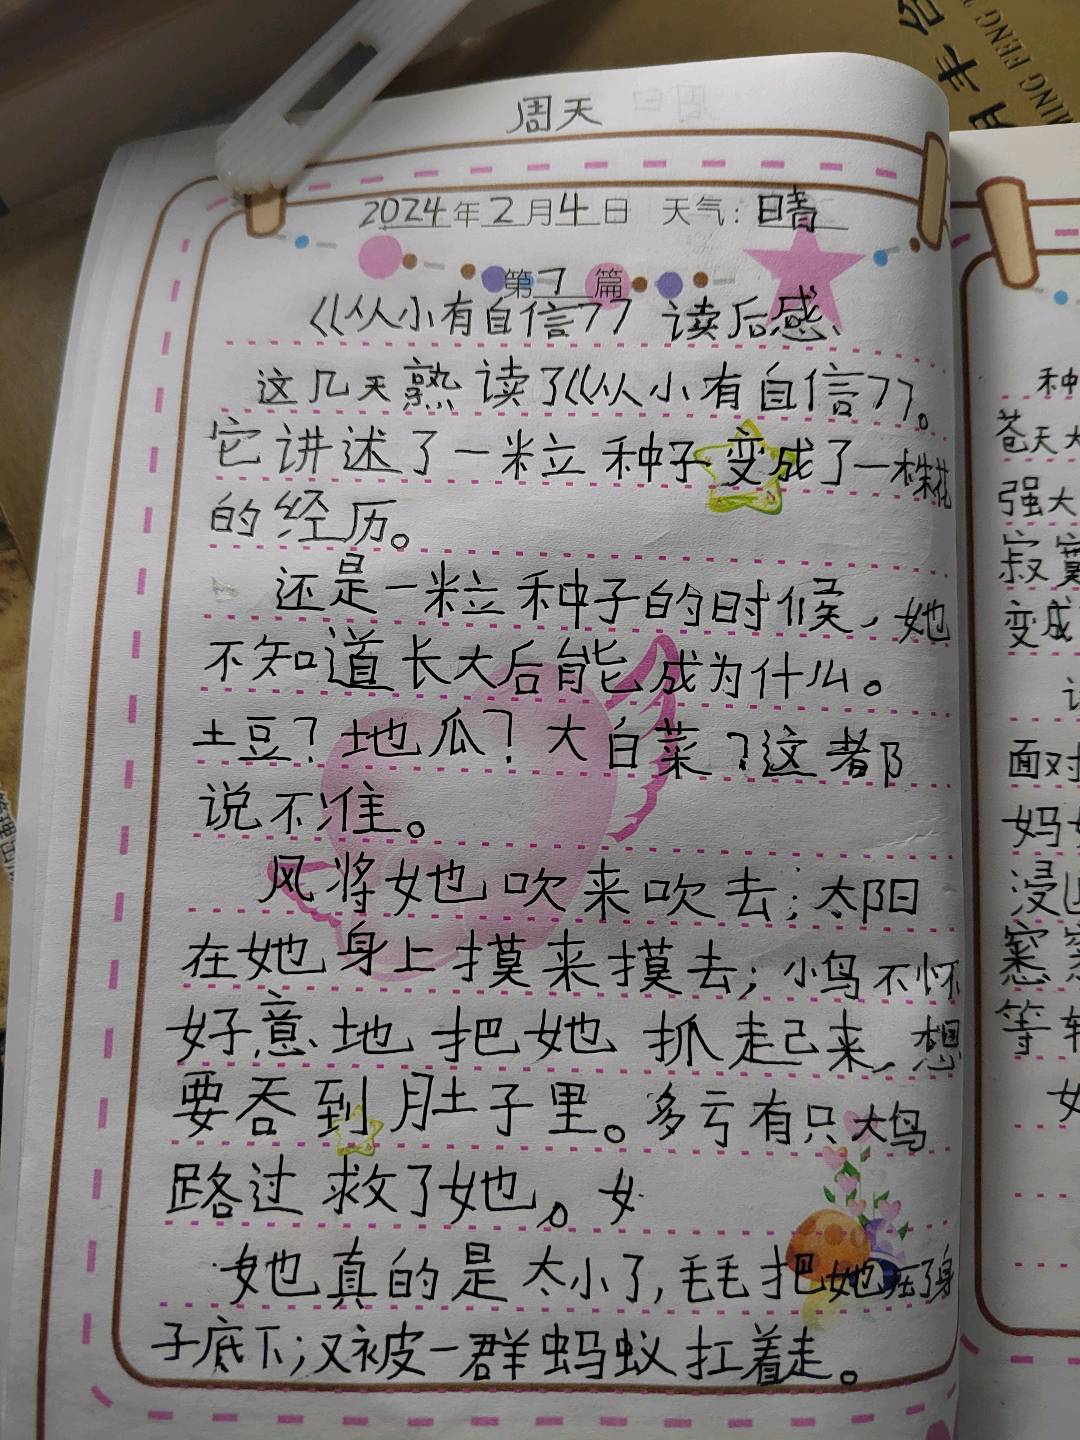 周天
2024年2月4日 天气:晴
第7篇
《从小有自信》读后感
这几天熟读了《从小有自信》。
它讲述了一粒种子变成了一株花
的经历。
还是一粒种子的时候,她
不知道长大后能成为什么。
土豆?地瓜?大白菜?这都
说不准。
风将她吹来吹去;太阳
在她身上摸来摸去;小鸟不怀
好意地把她抓起来,想
要吞到肚子里。多亏有只大鸟
路过救了她。女
她真的是太小了,毛毛把她压了身
子底下;又被一群蚂蚁扛着走。
种
苍天大
强大
寂寞
变成
面对
妈
浸
窸
等
女
MING FENG